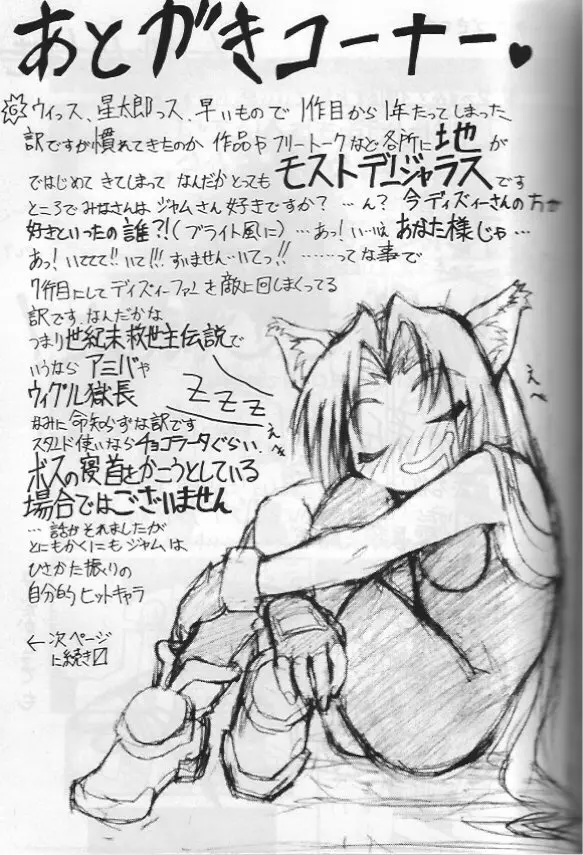 あとがきコーナー♥
ウィッス、星太郎っス、早いもので1作目から1年たってしまった
訳ですが慣れてきたのか 作品やフリートークなど各所に地が
ではじめてきてしまって なんだかとってもモストデンジャラスです
ところでみなさんはジャムさん好きですか? …ん? 今ディズィーさんの方が
好きといったの誰?!(ブライト風に)…あっ! いいはあなた様じゃ…
あっ! いててて!! いて!!! すいません…いてっ!! ……ってな事で
7作目にしてディズィーファンを敵に回しまくってる
訳です、なんだかな
つまり世紀末救世主伝説で
いうなら アミバや
ウイグル獄長
なみに命知らずな訳です
スタンド使いならチョコラータぐらい、
ボスの寝首をかこうとしている
場合ではございません
… 話がそれましたが
とにもかくにもジャムは、
ひさかた振りの
自分的ヒットキャラ
←次ページ
に続き
ZZZ
え〜
え〜